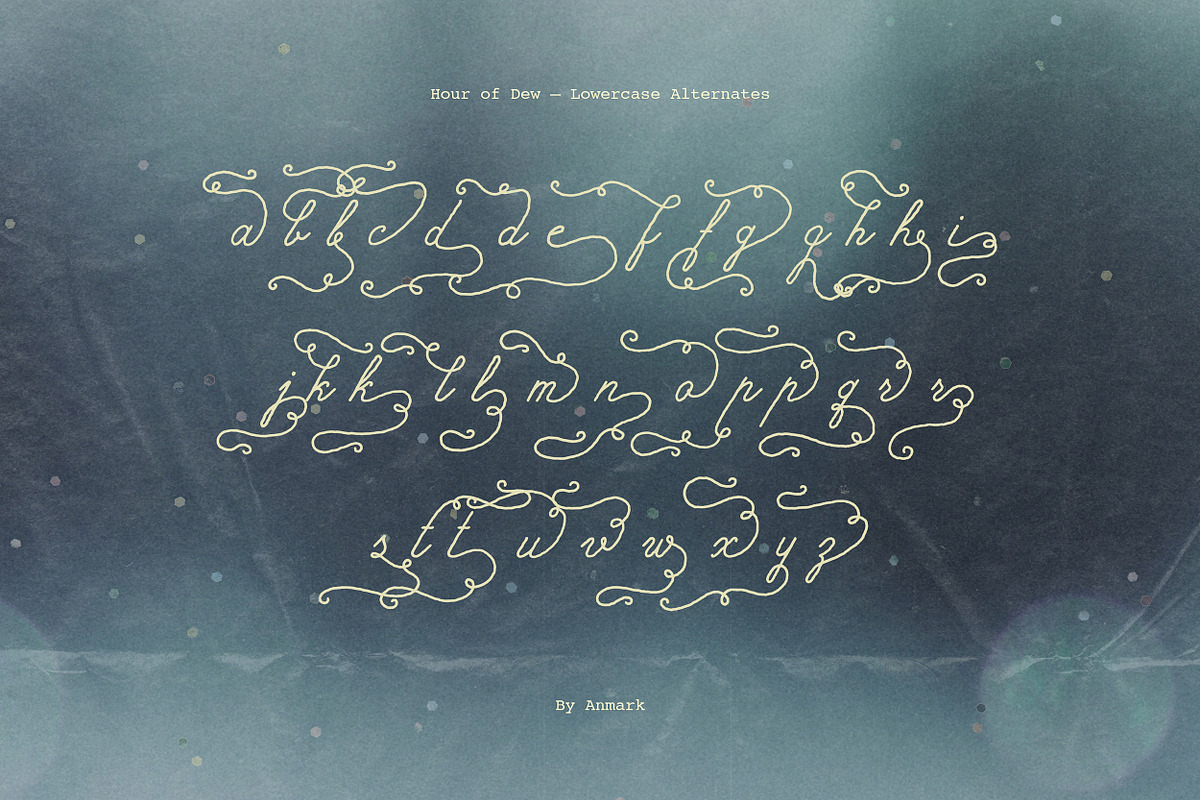 Hour of Dew — Lowercase Alternates
a b b c d d e f f g g h h i
j k k l l m n o p p q r r
s t t u v w x y z
By Anmark